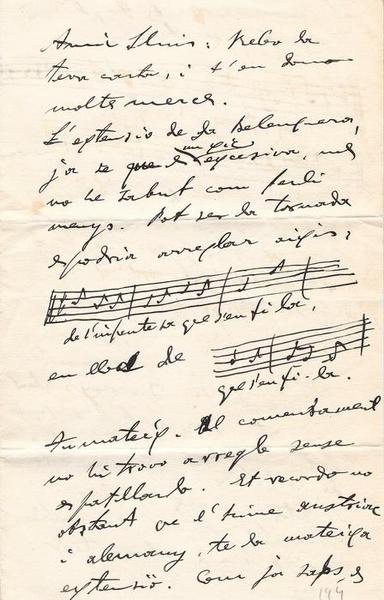 Amic Lluis: Rebo la
teva carta, i t'en dono
molts mercès.
L'extensio de La Balenguera,
ja se que es un xic excesiva, mes
no he sabut com ferli
menys. Pot ser la tornada
es podria arreglar aixis:
de l'infanteta que s'en fi la,
en lloc de
que s'en fi-la.
Tu mateix. Al comensament
no hi trovo arregle sense
espatllarla. Et recordo no
obstant que l'himne austriac
i alemany, te la mateixa
extensió. Com ja saps, es
194